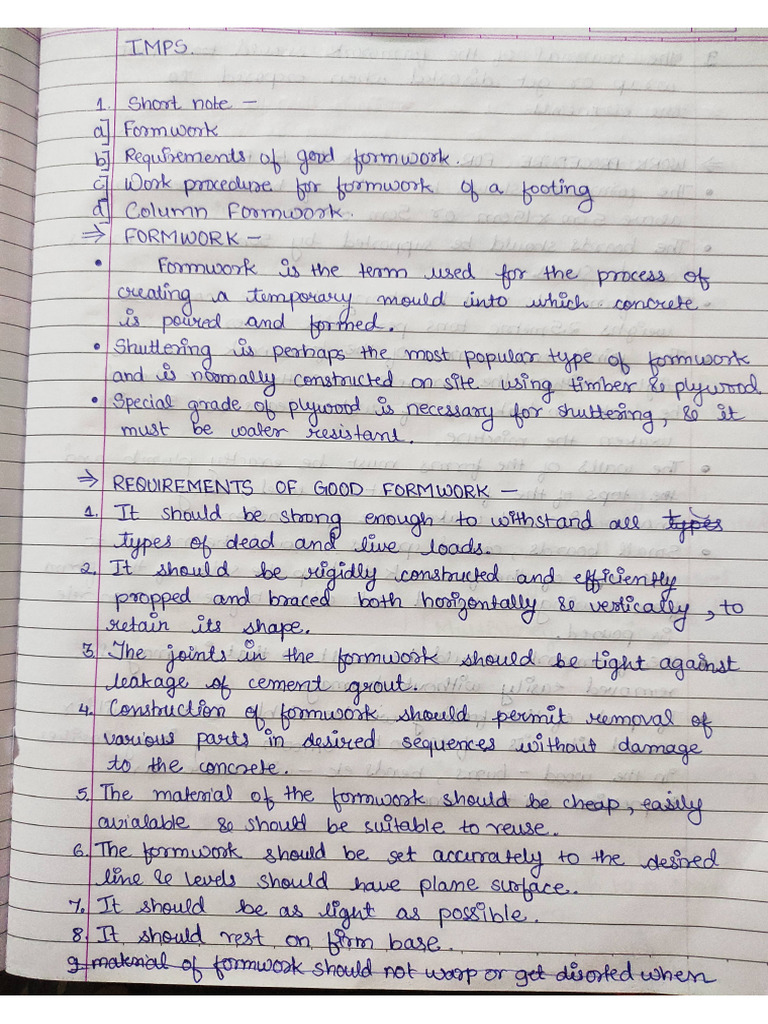 IMPS.
1. Short note —
a] Formwork
b] Requirements of good formwork.
c] Work procedure for formwork of a footing
d] Column Formwork.
⇒ FORMWORK —
• Formwork is the term used for the process of
creating a temporary mould into which concrete
is poured and formed.
• Shuttering is perhaps the most popular type of formwork
and is normally constructed on site using timber & plywood.
• Special grade of plywood is necessary for shuttering, & it
must be water resistant.
⇒ REQUIREMENTS OF GOOD FORMWORK —
1. It should be strong enough to withstand all types
types of dead and live loads.
2. It should be rigidly constructed and efficiently
propped and braced both horizontally & vertically, to
retain its shape.
3. The joints in the formwork should be tight against
leakage of cement grout.
4. Construction of formwork should permit removal of
various parts in desired sequences without damage
to the concrete.
5. The material of the formwork should be cheap, easily
avialable & should be suitable to reuse.
6. The formwork should be set accurately to the desired
line & levels should have plane surface.
7. It should be as light as possible.
8. It should rest on firm base.
9 material of formwork should not warp or get disorted when